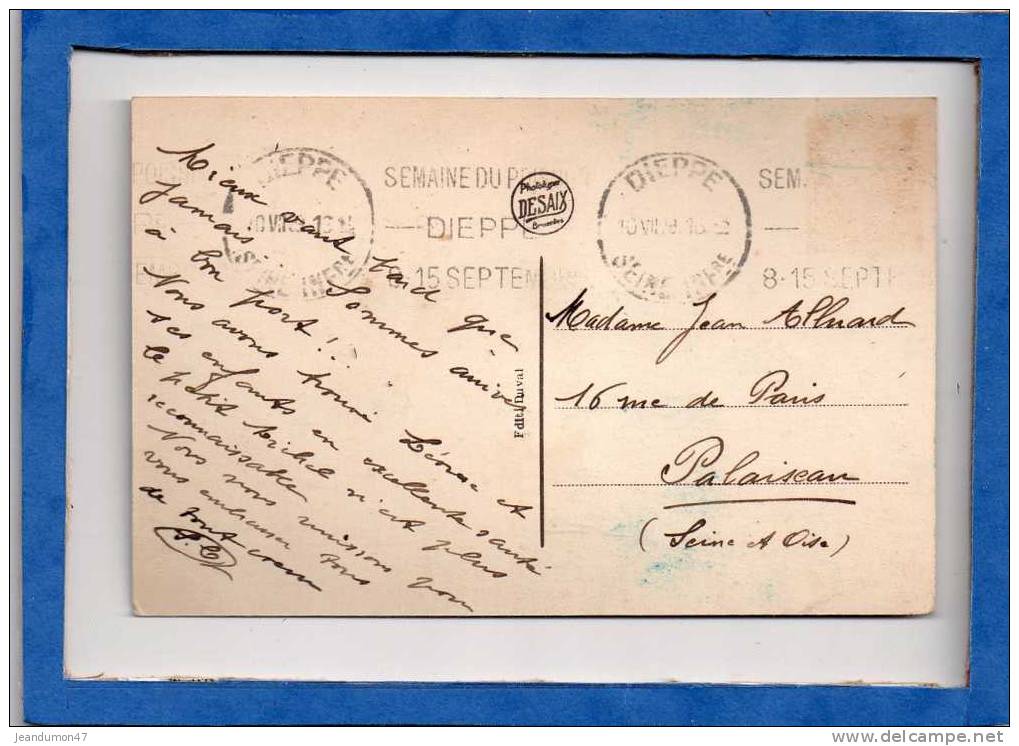 Mieux vaut tard que
jamais. Sommes arrivés
à bon port!!
Nous avons trouvé et
ses enfants en excellente santé
le petit Michel n'est plus
reconnaissable
Nous nous unissons pour
vous embrasser tous
de tout coeur
DIEPPE
SEINE INFRE
SEMAINE DU
DIEPPE
8-15 SEPTEMBRE
Phototypie
DESAIX
Bruxelles
DIEPPE
SEINE INFRE
SEM
8-15 SEPT
Edit. Duval
Madame Jean Alluard
16 rue de Paris
Palaiseau
(Seine et Oise)
jeandumon47
www.delcampe.net